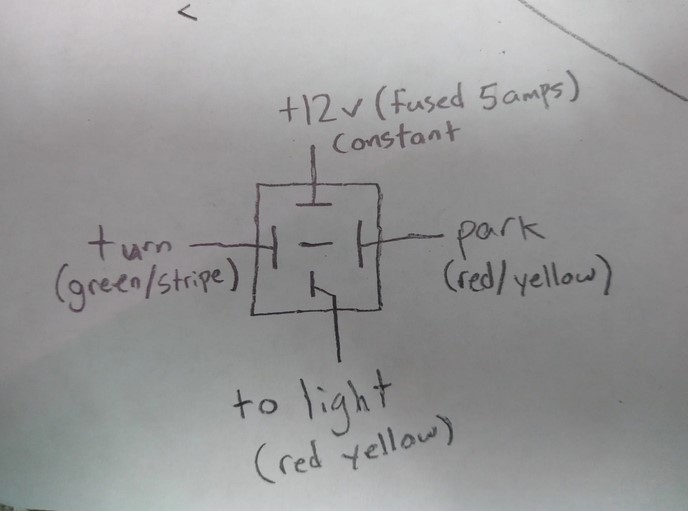 +12v (fused 5amps)
Constant
turn
(green/stripe)
park
(red/yellow)
to light
(red yellow)